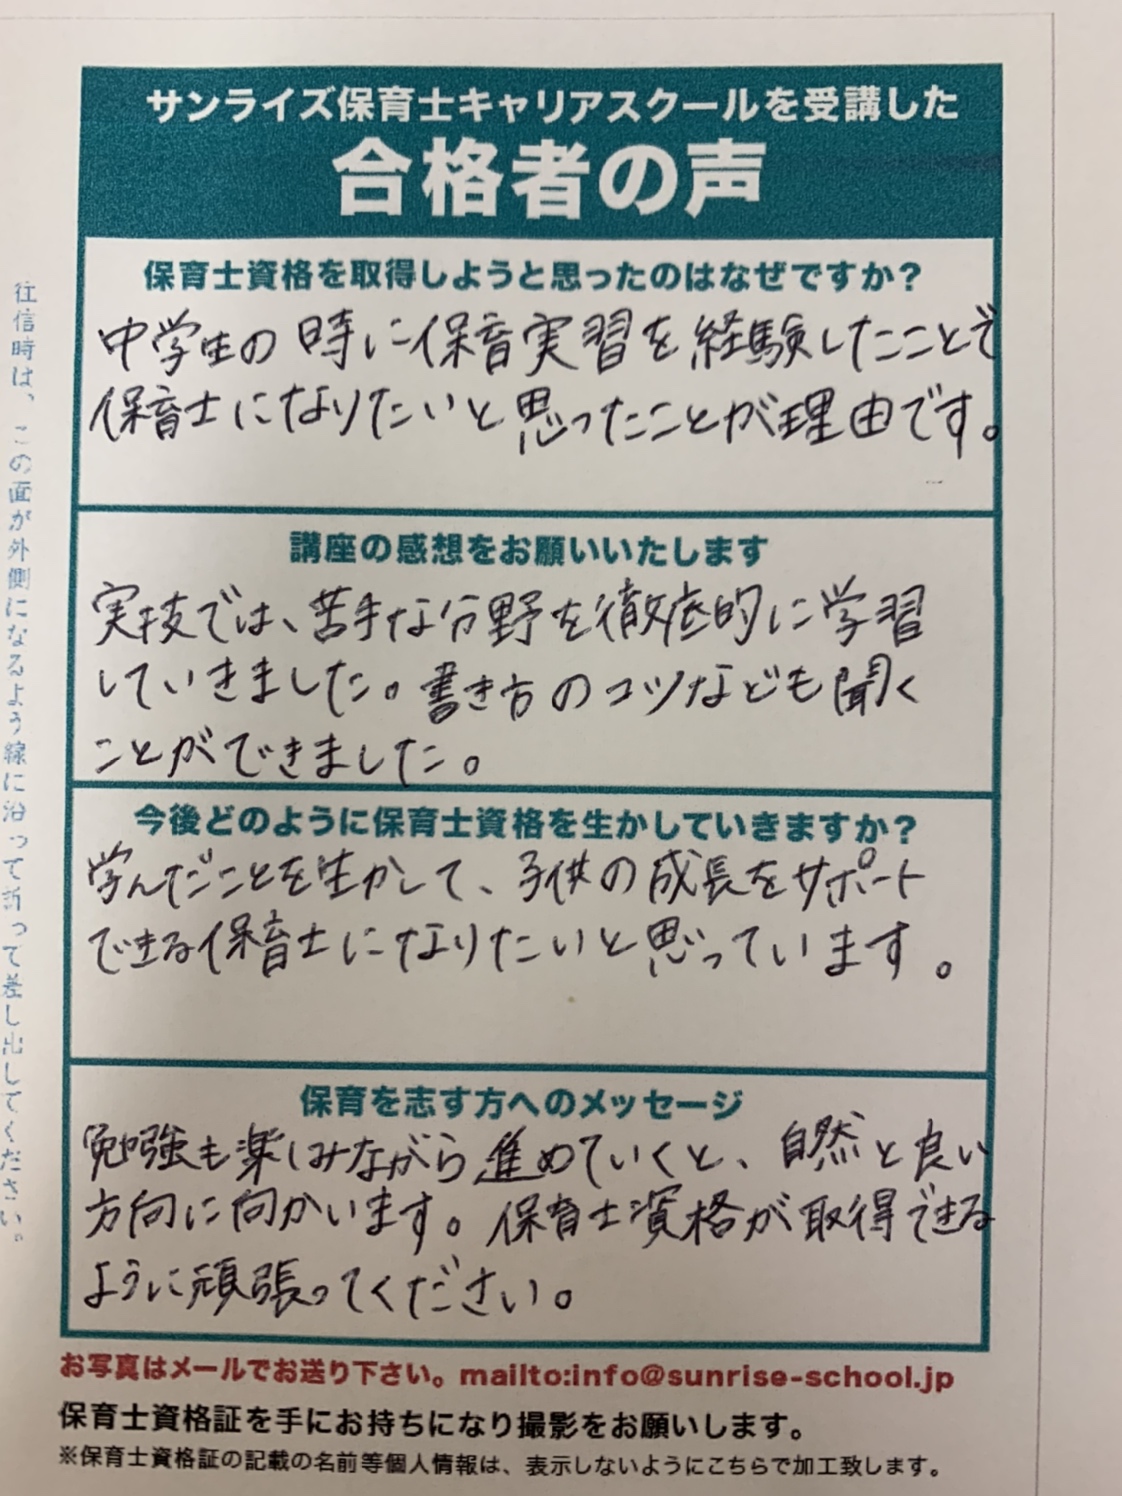 サンライズ保育士キャリアスクールを受講した
合格者の声
保育士資格を取得しようと思ったのはなぜですか？
中学生の時に保育実習を経験したことで
保育士になりたいと思ったことが理由です。
講座の感想をお願いいたします
実技では、苦手な分野を徹底的に学習
していきました。書き方のコツなども聞く
ことができました。
今後どのように保育士資格を生かしていきますか？
学んだことを生かして、子供の成長をサポート
できる保育士になりたいと思っています。
保育を志す方へのメッセージ
勉強も楽しみながら進めていくと、自然と良い
方向に向かいます。保育士資格が取得できる
ように頑張ってください。
お写真はメールでお送り下さい。mailto:info@sunrise-school.jp
保育士資格証を手にお持ちになり撮影をお願いします。
※保育士資格証の記載の名前等個人情報は、表示しないようにこちらで加工致します。
往信時は、この面が外側になるよう線に沿って折って差し出してください。